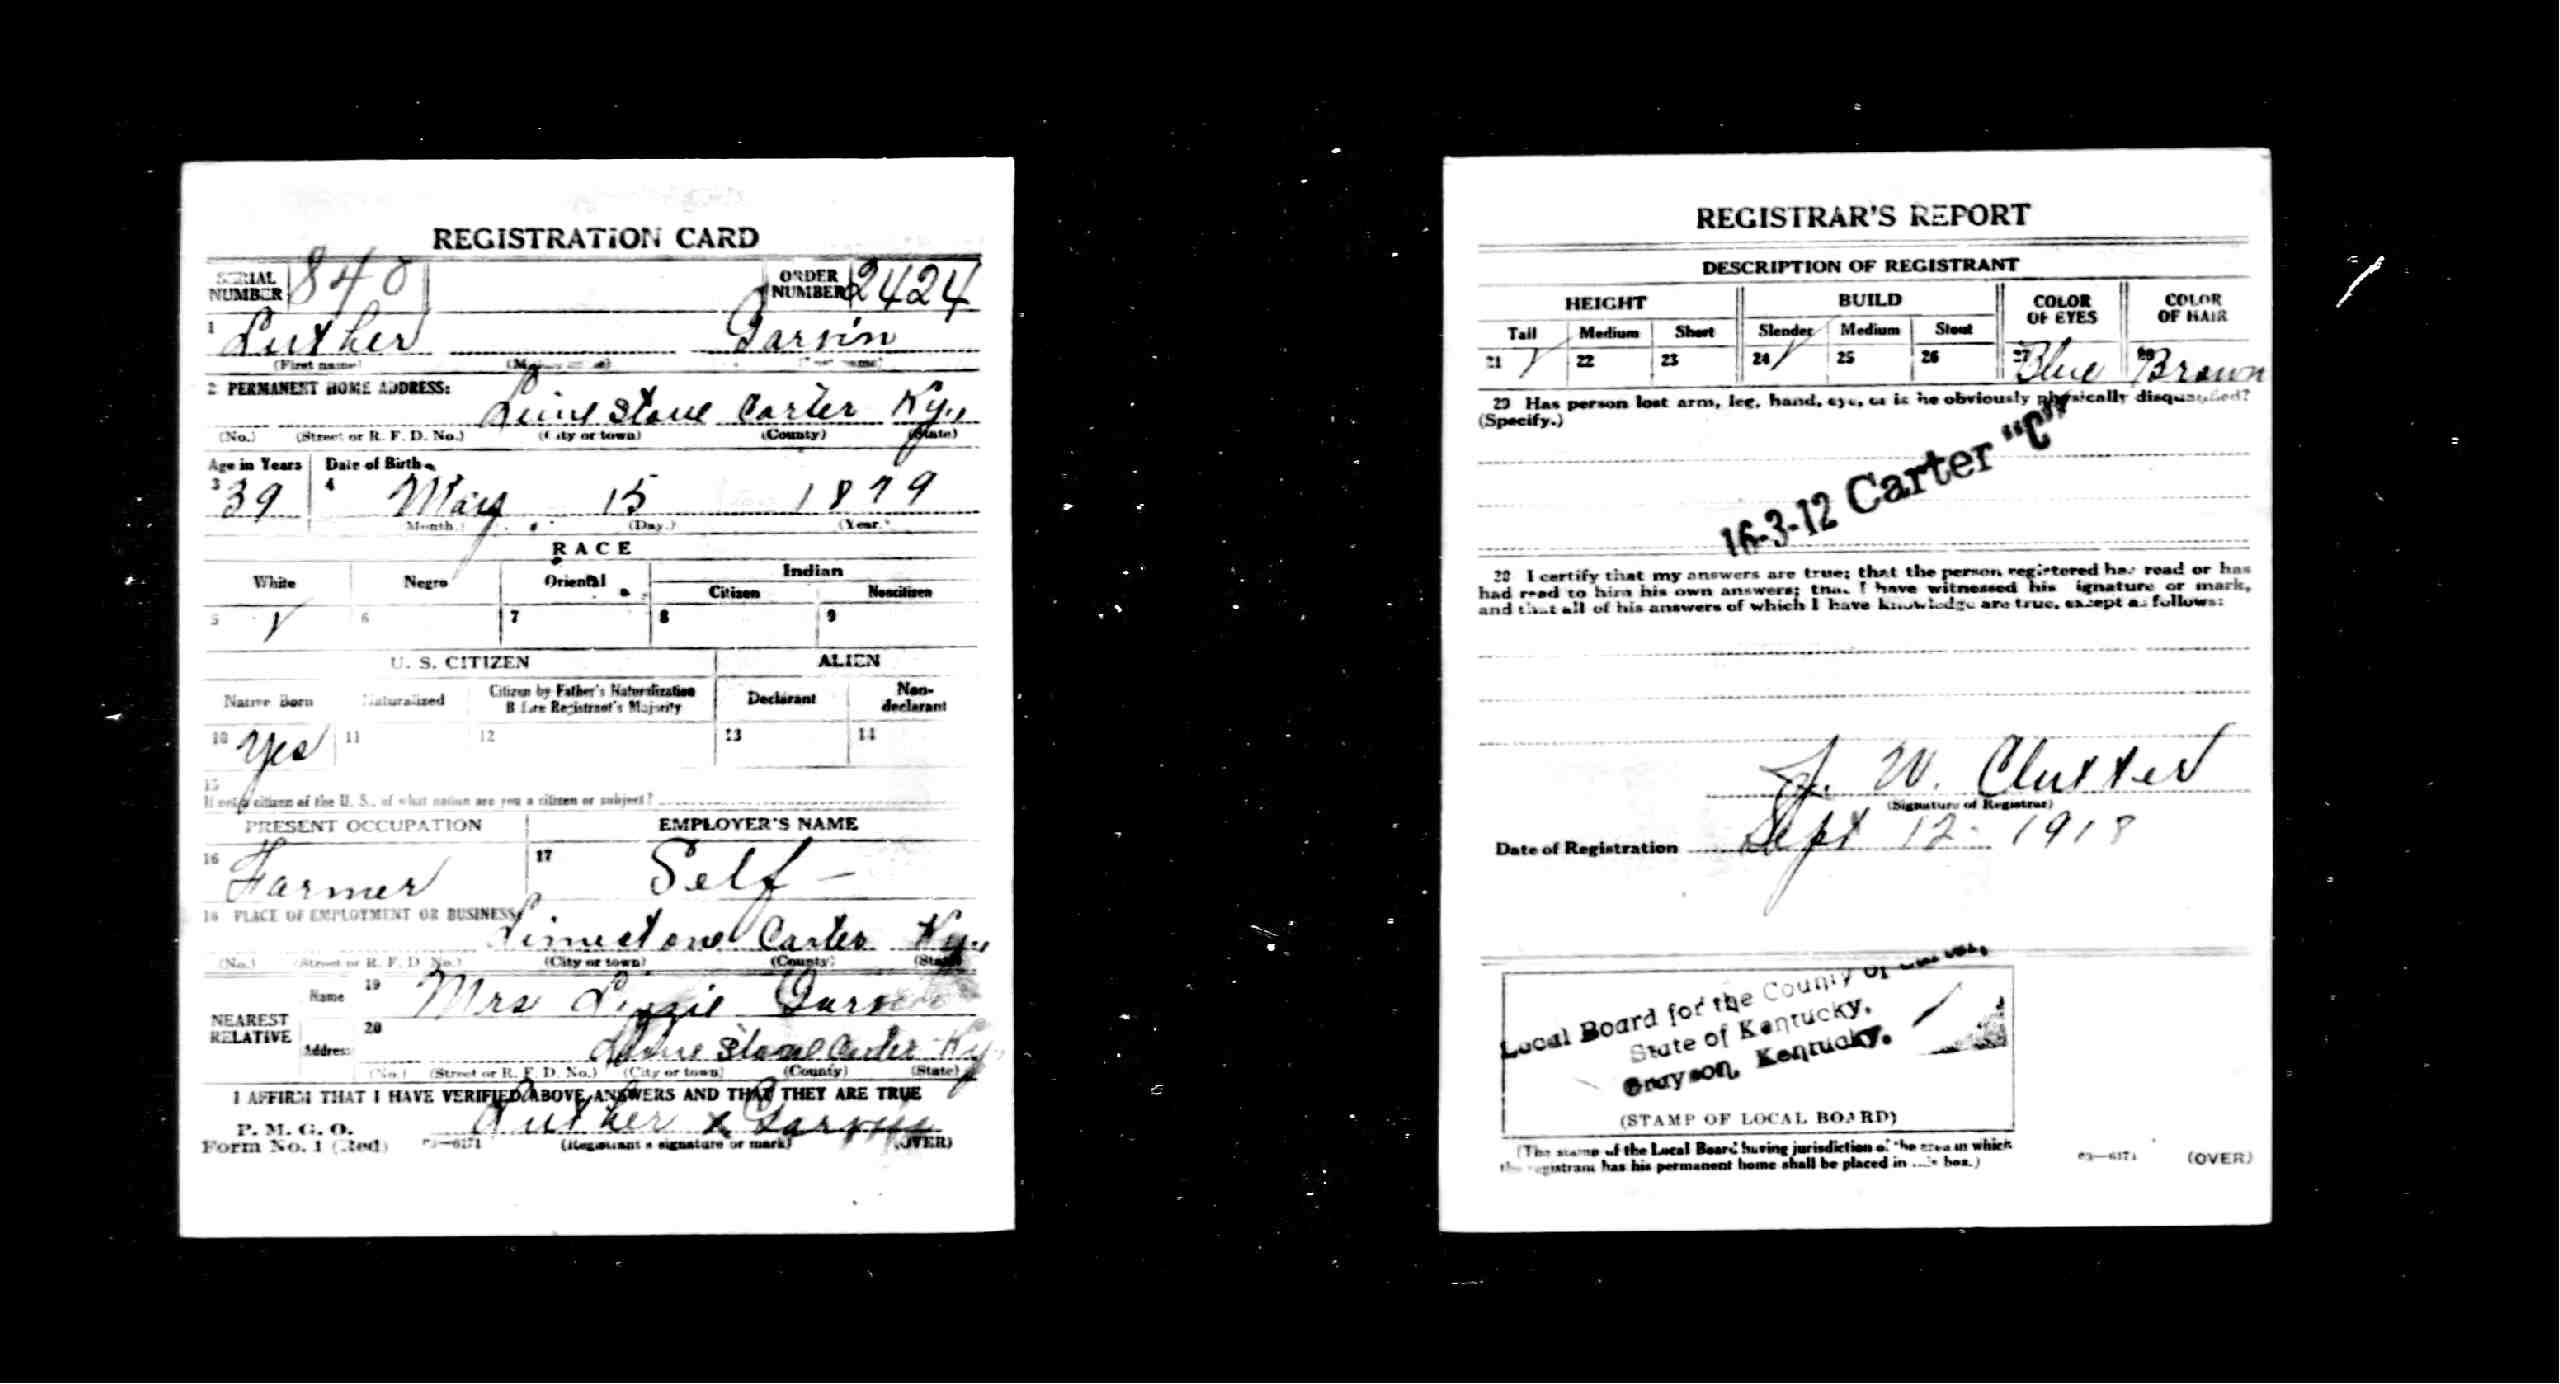 REGISTRATION CARD
SERIAL NUMBER 840 ORDER NUMBER 2424
1 Luther Garvin
(First name)
2 PERMANENT HOME ADDRESS:
Lime Stone Carter Ky.,
(No.) (Street or R. F. D. No.) (City or town) (County) (State)
Age in Years Date of Birth
3 39 4 May 15 1879
(Month.) (Day.) (Year.)
RACE
White Negro Oriental Indian
Citizen Noncitizen
5 6 7 8 9
U. S. CITIZEN ALIEN
Native Born Naturalized Citizen by Father's Naturalization Before Registrant's Majority Declarant Non-declarant
10 Yes 11 12 13 14
15
If not a citizen of the U. S., of what nation are you a citizen or subject?
PRESENT OCCUPATION EMPLOYER'S NAME
16 Farmer 17 Self –
18 PLACE OF EMPLOYMENT OR BUSINESS:
Limestone Carter Ky.,
(No.) (Street or R. F. D. No.) (City or town) (County) (State)
NEAREST RELATIVE
Name 19 Mrs Lizzie Garvin
Address 20 Lime Stone Carter Ky
(No.) (Street or R. F. D. No.) (City or town) (County) (State)
I AFFIRM THAT I HAVE VERIFIED ABOVE ANSWERS AND THAT THEY ARE TRUE
P. M. G. O.
Form No. 1 (Red) Luther x Garvin
(Registrant's signature or mark) (OVER)
REGISTRAR'S REPORT
DESCRIPTION OF REGISTRANT
HEIGHT BUILD COLOR OF EYES COLOR OF HAIR
Tall Medium Short Slender Medium Stout
21 22 23 24 25 26 27 Blue 28 Brown
29 Has person lost arm, leg, hand, eye, or is he obviously physically disqualified?
(Specify.)
16-3-12 Carter "C"
30 I certify that my answers are true; that the person registered has read or has
had read to him his own answers; that I have witnessed his signature or mark,
and that all of his answers of which I have knowledge are true, except as follows:
J. W. Clutter
(Signature of Registrar)
Date of Registration Sept 12 - 1918
Local Board for the County of Carter,
State of Kentucky,
Grayson, Kentucky.
(STAMP OF LOCAL BOARD)
(The stamp of the Local Board having jurisdiction of the area in which
the registrant has his permanent home shall be placed in this box.)
03—6171 (OVER)